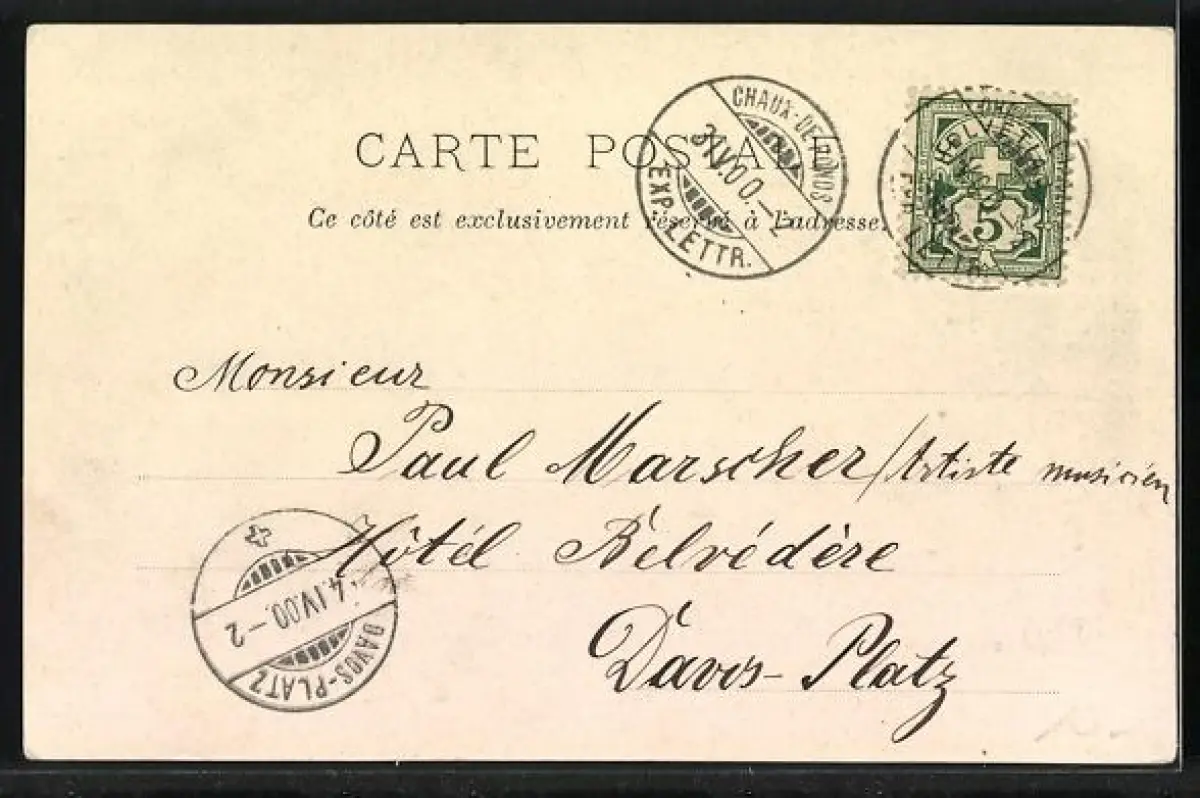 CARTE POSTALE
Ce côté est exclusivement réservé à l'adresse.
CHAUX-DE-FONDS
IV.00.-2
EXP. LETTR.
HELVETIA
5
LETTR.
Monsieur
Paul Marscher / Artiste musicien
Hôtél Belvédère
Davos-Platz
4.IV.00.-2
DAVOS-PLATZ